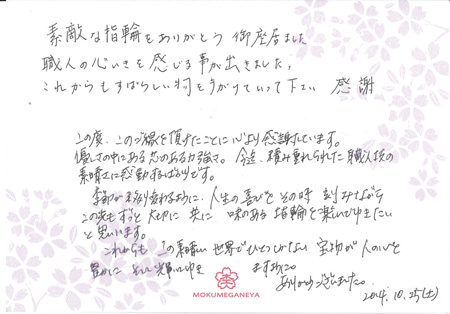 素敵な指輪をありがとう御座居ました
職人の心いきを感じる事が出きました。
これからもすばらしい物を手がけていって下さい 感謝
この度、このご縁を頂けたことに心より感謝しています。
優しさの中にある芯のある力強さ。今迄、積み重ねられた職人技の
素晴さに感動するばかりです。
季節が移り変わるように、人生の喜びをその時 刻みながら
この先もずっと 大切に 共に 味のある 指輪を楽しんでゆきたい
と思います。
これからも この素晴しい世界でひとつしかない 宝物が 人の心を
豊かに そして輝いてゆき ますように
ありがとうございました。
MOKUMEGANEYA
2014.10.25(土)